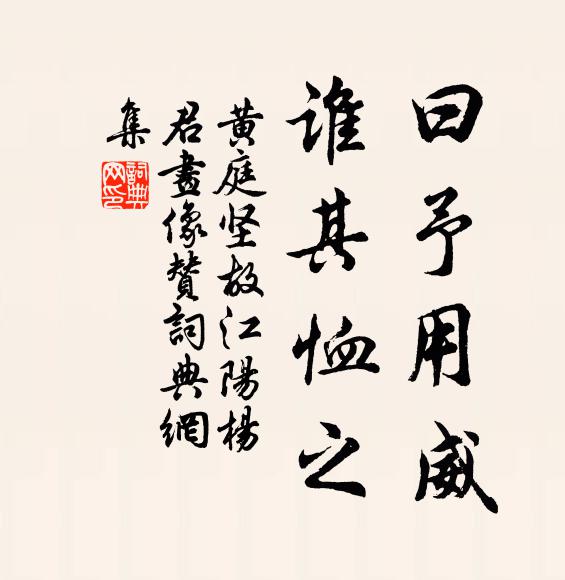 曰予用威
谁其恤之
黄庭坚故江陽楊
君畫像贊詞典網
集
詞典
网印